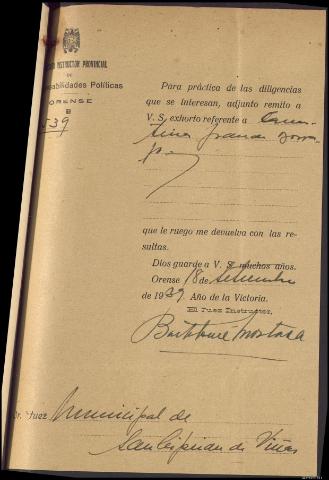 INSTRUCTOR PROVINCIAL
DE
Responsabilidades Políticas
ORENSE
539
Para práctica de las diligencias
que se interesan, adjunto remito a
V. S. exhorto referente a

que le ruego me devuelva con las re-
sultas.
Dios guarde a V. S. muchos años.
Orense 18 de Setiembre
de 1939. Año de la Victoria.
El Juez Instructor,
Sr. Juez Municipal de
San Ciprian de Viñas